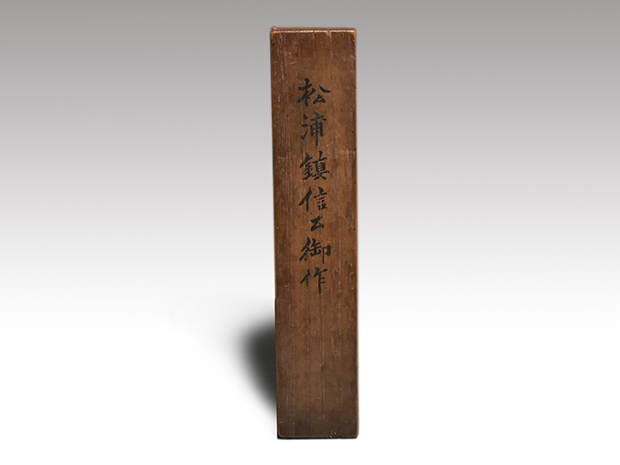 松浦鎮信公御作